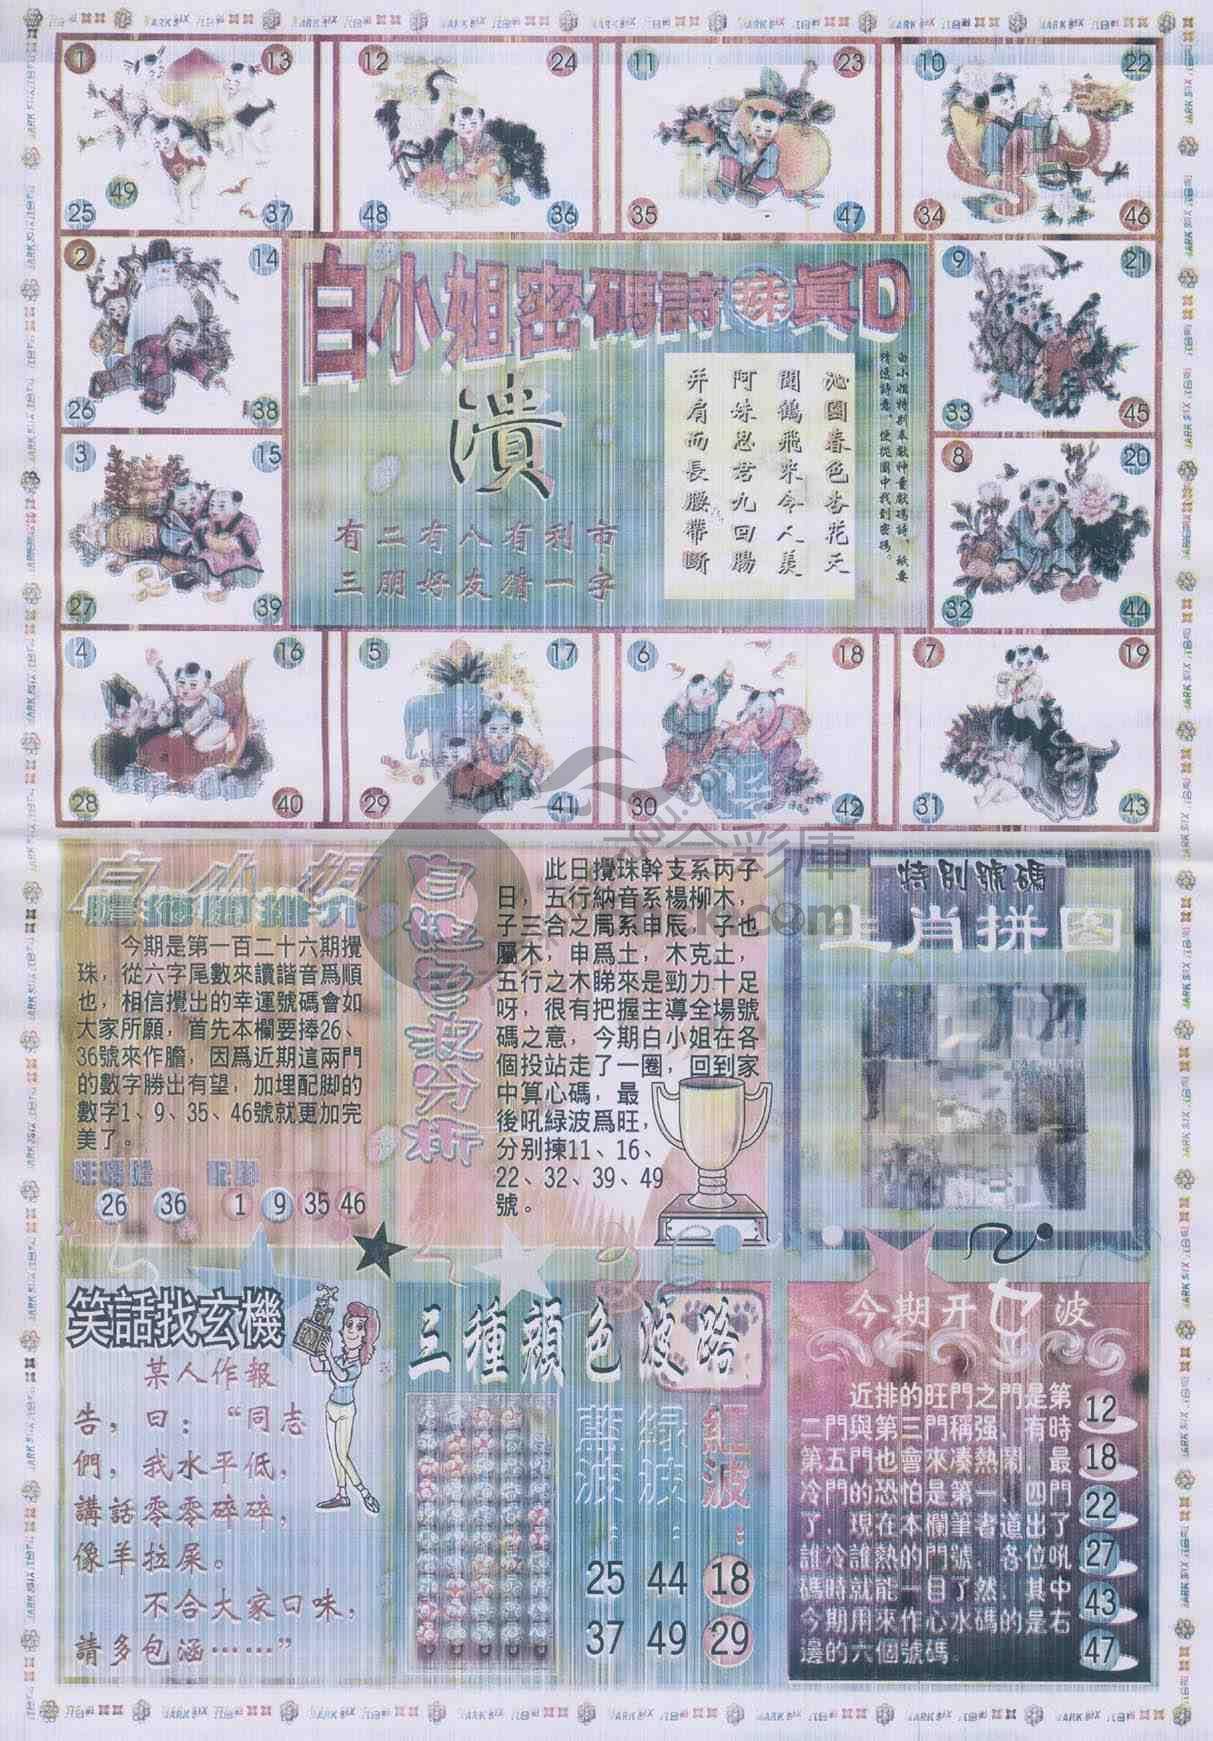 1 13
49
25 37
12 24
48 36
11 23
35 47
10 22
34 46
2 14
26 38
白小姐密碼詩
眞D
潰
有二有八有利市
三朋好友猜一字
沁園春色杏花天
聞鶴飛來令人美
阿妹思君九回腸
并肩而長腰帶斷
9 21
33 45
3 15
27 39
8 20
32 44
4 16
28 40
5 17
29 41
6 18
30 42
7 19
31 43
白小姐
今期是第一百二十六期攪
珠，從六字尾數來讀諧音爲順
也，相信攪出的幸運號碼會如
大家所願，首先本欄要捧26、
36號來作膽，因爲近期這兩門
的數字勝出有望，加埋配脚的
數字1、9、35、46號就更加完
美了。
26 36 1 9 35 46
白姐色波分析
此日攪珠幹支系丙子
日，五行納音系楊柳木，
子三合之局系申辰、子也
屬木，申爲土，木克土，
五行之木睇來是勁力十足
呀，很有把握主導全場號
碼之意，今期白小姐在各
個投站走了一圈，回到家
中算心碼，最
後吼緑波爲旺，
分别揀11、16、
22、32、39、49
號。
特别號碼
生肖拼图
笑話找玄機
某人作報
告，曰：“同志
們，我水平低，
講話零零碎碎，
像羊拉屎。
不合大家口味，
請多包涵……”
三種顔色波路
紅波：
18
29
緑波：
44
49
藍波：
25
37
今期开 波
近排的旺門之門是第
二門與第三門稱强、有時
第五門也會來凑熱鬧、最
冷門的恐怕是第一、四門
了，現在本欄筆者道出了
誰冷誰熱的門號，各位吼
碼時就能一目了然、其中
今期用來作心水碼的是右
邊的六個號碼。
12
18
22
27
43
47